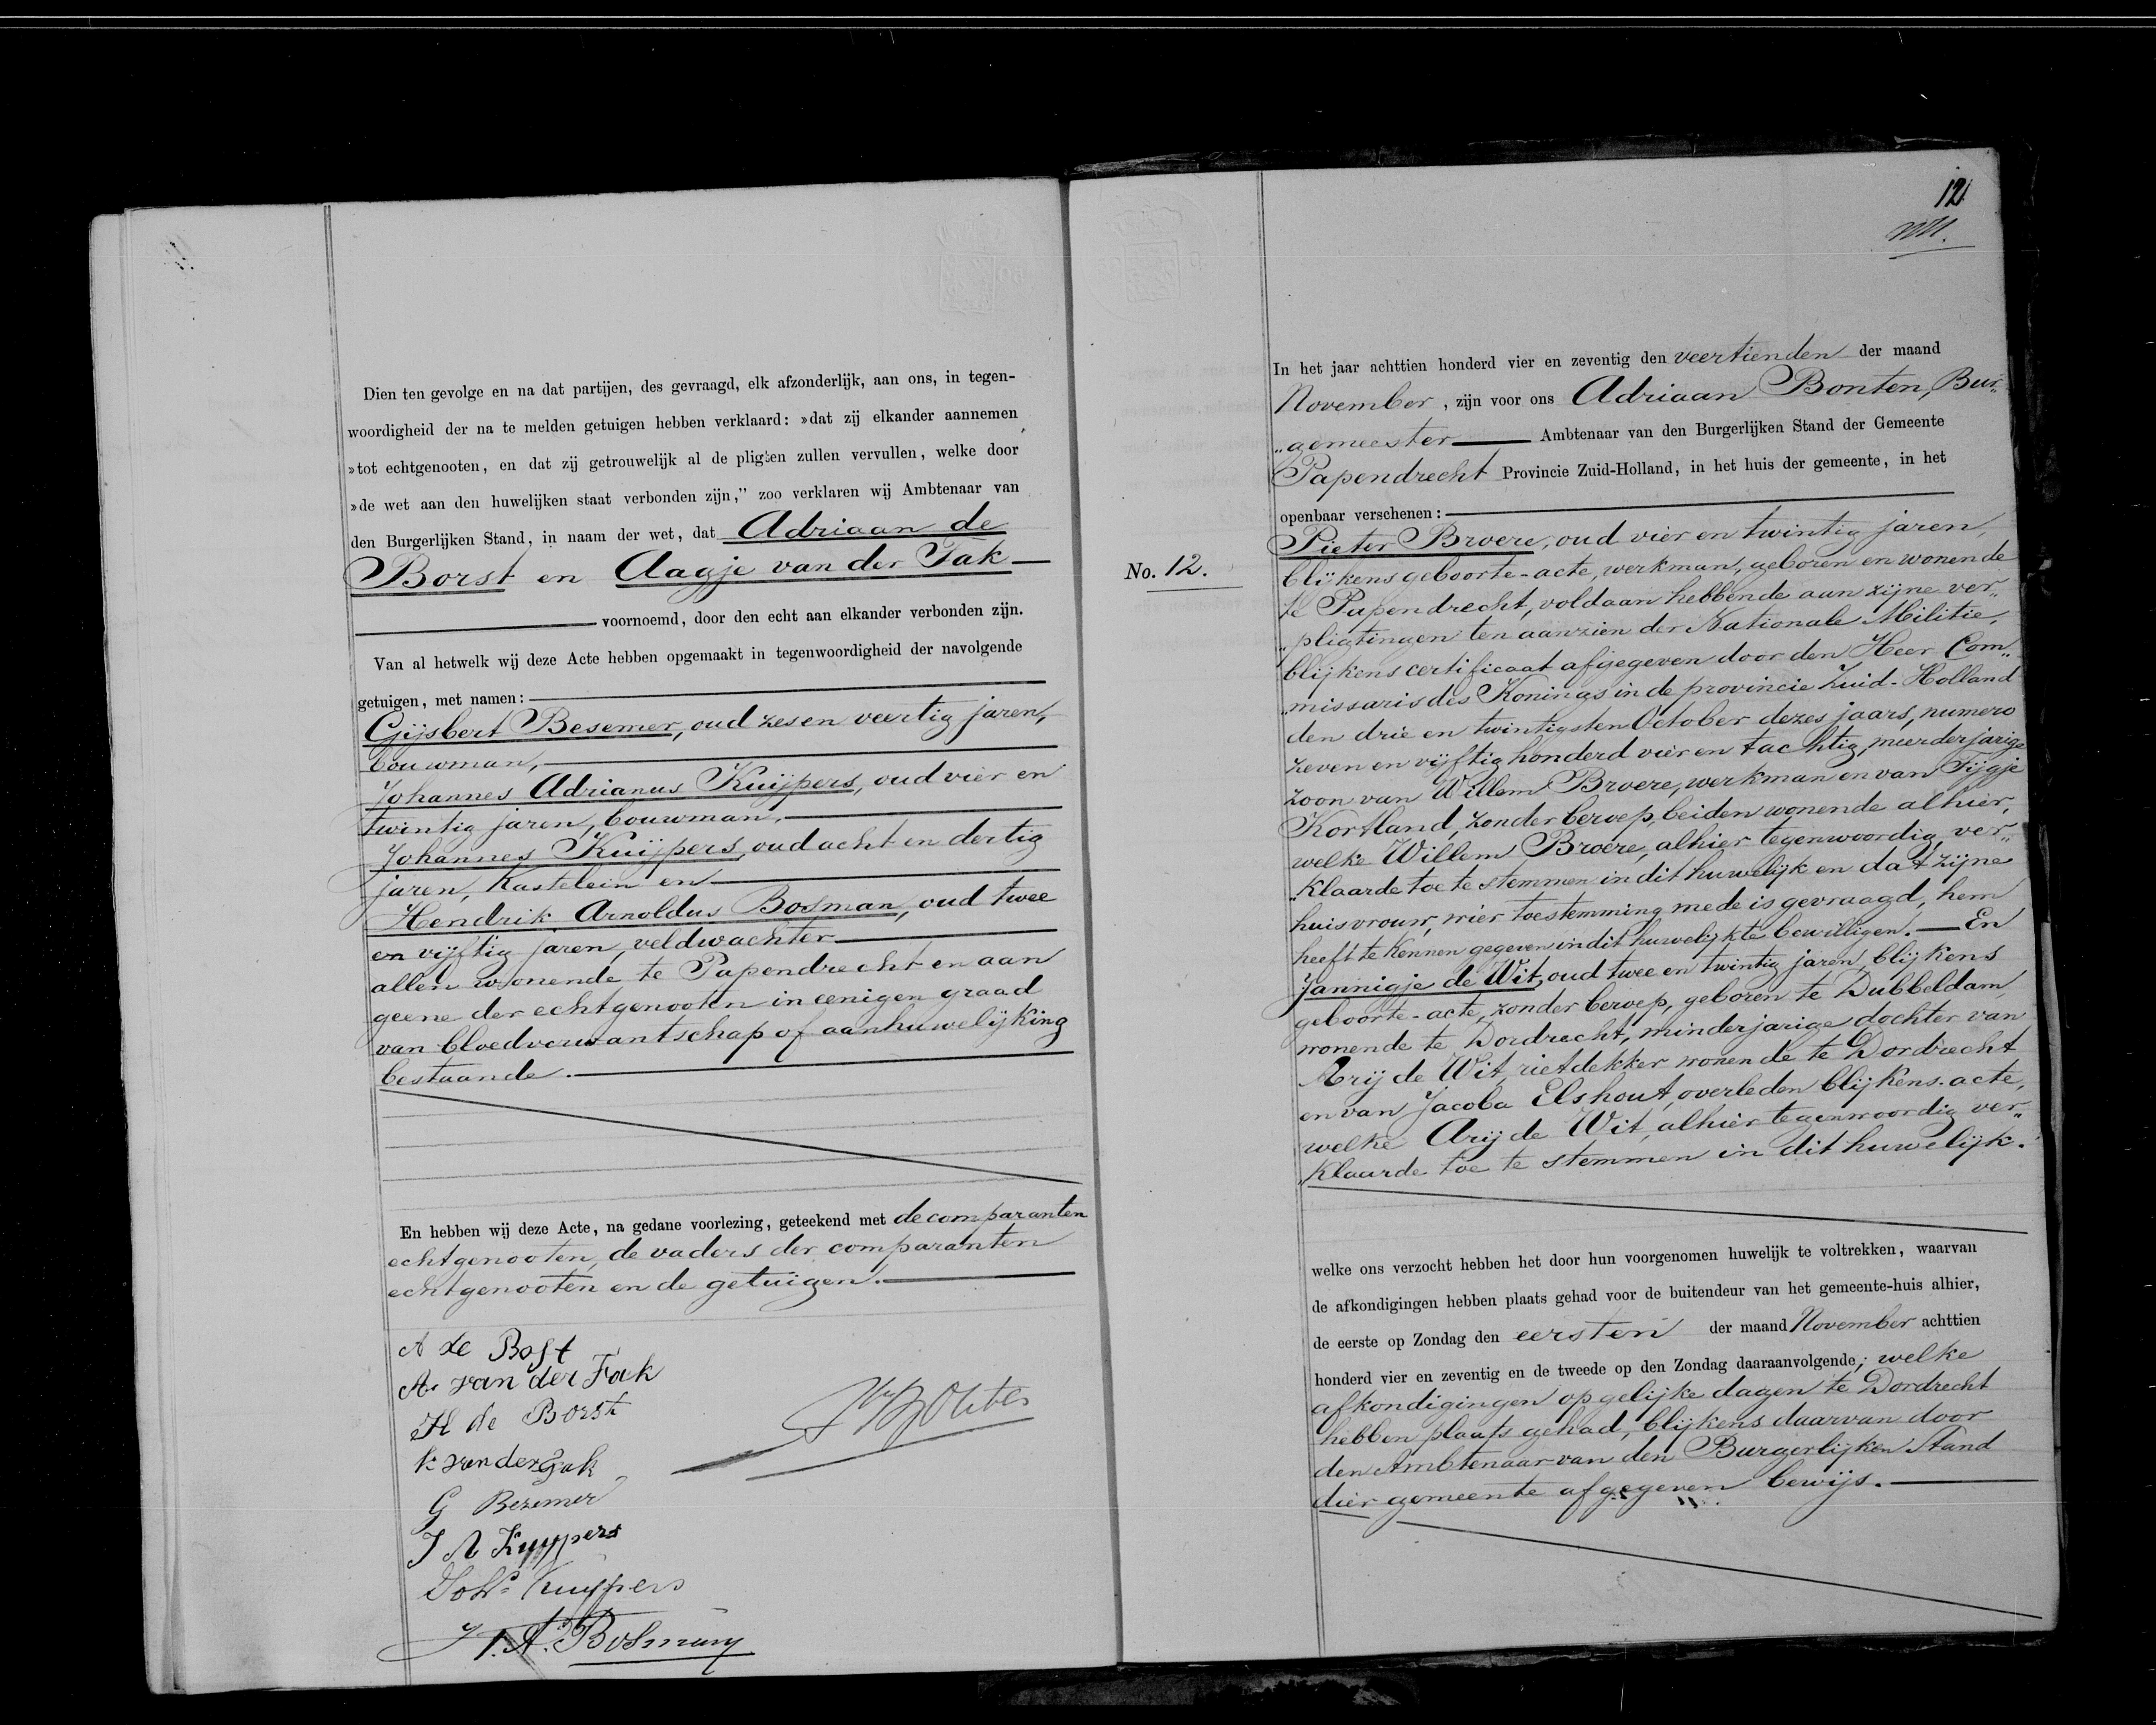 Dien ten gevolge en na dat partijen, des gevraagd, elk afzonderlijk, aan ons, in tegen-
woordigheid der na te melden getuigen hebben verklaard: »dat zij elkander aannemen
»tot echtgenooten, en dat zij getrouwelijk al de pligten zullen vervullen, welke door
»de wet aan den huwelijken staat verbonden zijn,” zoo verklaren wij Ambtenaar van
den Burgerlijken Stand, in naam der wet, dat Adriaan de
Borst en Aagje van der Tak
voornoemd, door den echt aan elkander verbonden zijn.
Van al hetwelk wij deze Acte hebben opgemaakt in tegenwoordigheid der navolgende
getuigen, met namen:
Gijsbert Besemer, oud zes en veertig jaren,
bouwman,
Johannes Adrianus Kuijpers, oud vier en
twintig jaren, bouwman,
Johannes Kuijpers, oud acht en dertig
jaren, Kastelein en
Hendrik Arnoldus Bosman, oud twee
en vijftig jaren, veldwachter
allen wonende te Papendrecht en aan
geene der echtgenooten in eenigen graad
van bloedverwantschap of aanhuwelijking
bestaande.
En hebben wij deze Acte, na gedane voorlezing, geteekend met de comparanten
echtgenooten, de vaders der comparanten
echtgenooten en de getuigen.
A de Bost
A. van der Tak
H de Borst
k van der Tak
G Bezemer
J A Kuypers
Johs Kuijpers
H. A. Bosman
12
No. 12.
In het jaar achttien honderd vier en zeventig den veertienden der maand
November, zijn voor ons Adriaan Bonten, Bur„
„gemeester Ambtenaar van den Burgerlijken Stand der Gemeente
Papendrecht Provincie Zuid-Holland, in het huis der gemeente, in het
openbaar verschenen:
Pieter Broere, oud vier en twintig jaren,
blijkens geboorte-acte, werkman, geboren en wonende
te Papendrecht, voldaan hebbende aan zijne ver„
„pligtingen ten aanzien der Nationale Militie,
blijkens certificaat afgegeven door den Heer Com„
„missaris des Konings in de provincie Zuid-Holland
den drie en twintigsten October dezes jaars, numero
zeven en vijftig honderd vier en tachtig, meerderjarige
zoon van Willem Broere, werkman en van Tijgje
Kortland, zonder beroep, beiden wonende alhier,
welke Willem Broere, alhier tegenwoordig, ver„
„klaarde toe te stemmen in dit huwelijk en dat zijne
huisvrouw, wier toestemming mede is gevraagd, hem
heeft te kennen gegeven in dit huwelijk te bewilligen. — En
Jannigje de Wit, oud twee en twintig jaren, blijkens
geboorte-acte, zonder beroep, geboren te Dubbeldam,
wonende te Dordrecht, minderjarige dochter van
Arij de Wit, rietdekker wonende te Dordrecht
en van Jacoba Elshout, overleden blijkens acte,
welke Arij de Wit, alhier tegenwoordig ver„
„klaarde toe te stemmen in dit huwelijk.
welke ons verzocht hebben het door hun voorgenomen huwelijk te voltrekken, waarvan
de afkondigingen hebben plaats gehad voor de buitendeur van het gemeente-huis alhier,
de eerste op Zondag den eersten der maand November achttien
honderd vier en zeventig en de tweede op den Zondag daaraanvolgende; welke
afkondigingen op gelijke dagen te Dordrecht
hebben plaats gehad, blijkens daarvan door
den Ambtenaar van den Burgerlijken Stand
dier gemeente afgegeven bewijs.